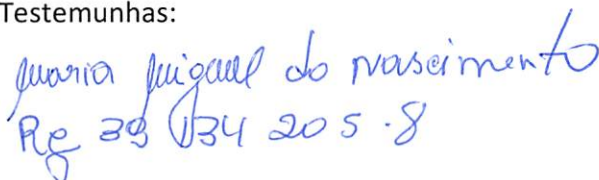 Testemunhas:
Maria Miguel do Nascimento
Rg 39 134 205-8